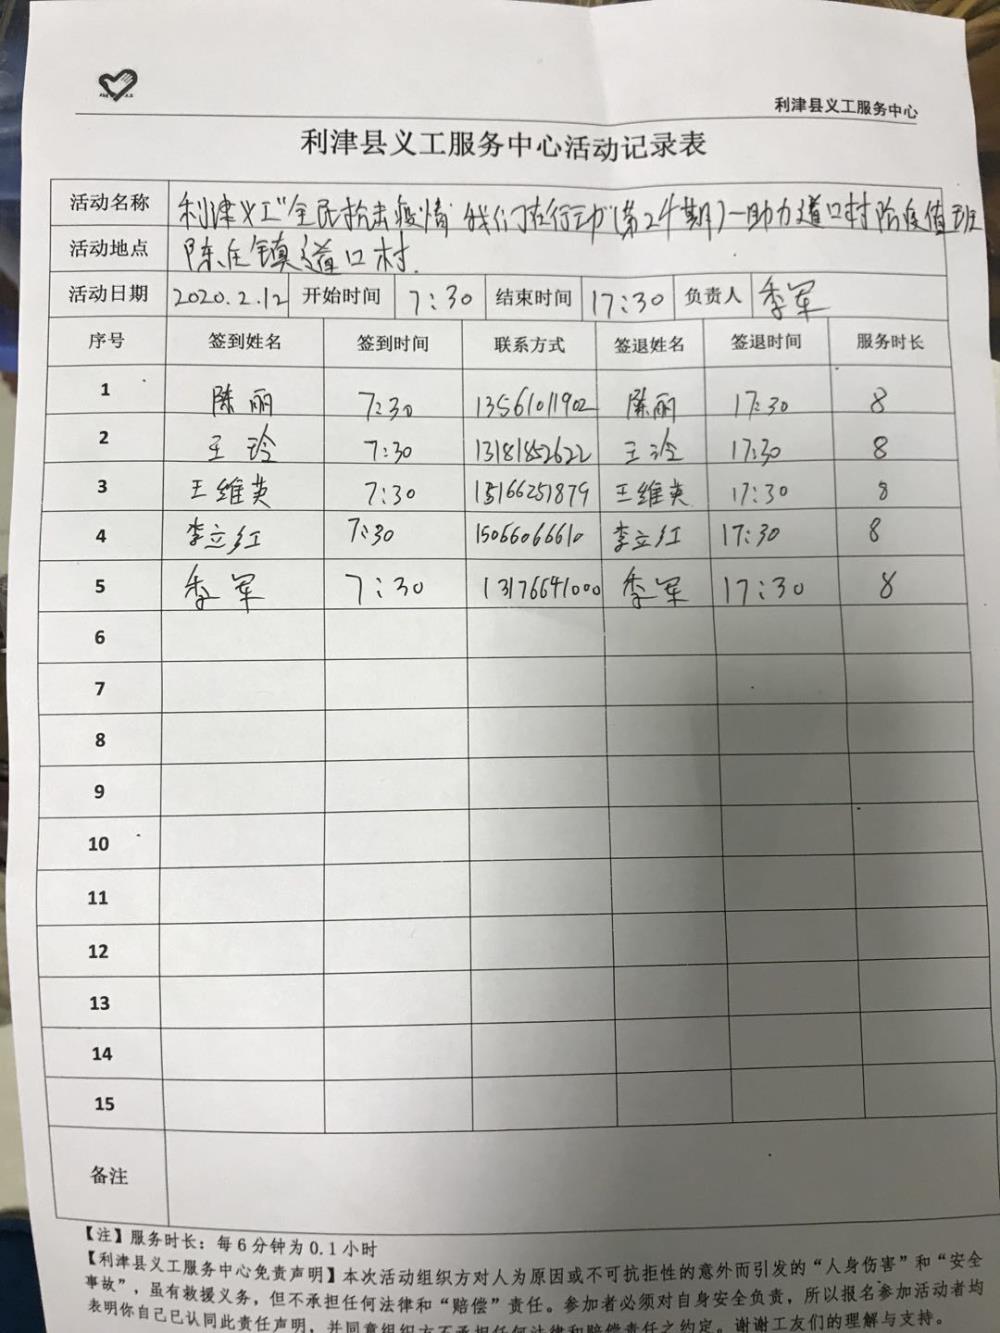 利津县义工服务中心
利津县义工服务中心活动记录表
活动名称 利津义工"全民抗击疫情 我们在行动"(第24期)—助力道口村防疫值班
活动地点 陈庄镇道口村
活动日期 2020.2.12 开始时间 7:30 结束时间 17:30 负责人 季军
序号 签到姓名 签到时间 联系方式 签退姓名 签退时间 服务时长
1 陈丽 7:30 13561011902 陈丽 17:30 8
2 王玲 7:30 13181852622 王玲 17:30 8
3 王维英 7:30 15166251879 王维英 17:30 8
4 李立红 7:30 15066066610 李立红 17:30 8
5 季军 7:30 13176641000 季军 17:30 8
6
7
8
9
10
11
12
13
14
15
备注
【注】服务时长：每6分钟为0.1小时
【利津县义工服务中心免责声明】本次活动组织方对人为原因或不可抗拒性的意外而引发的“人身伤害”和“安全
事故”，虽有救援义务，但不承担任何法律和“赔偿”责任。参加者必须对自身安全负责，所以报名参加活动者均
表明你自己已认同此责任声明，并同意组织方不承担任何法律和赔偿责任之约定。谢谢工友们的理解与支持。